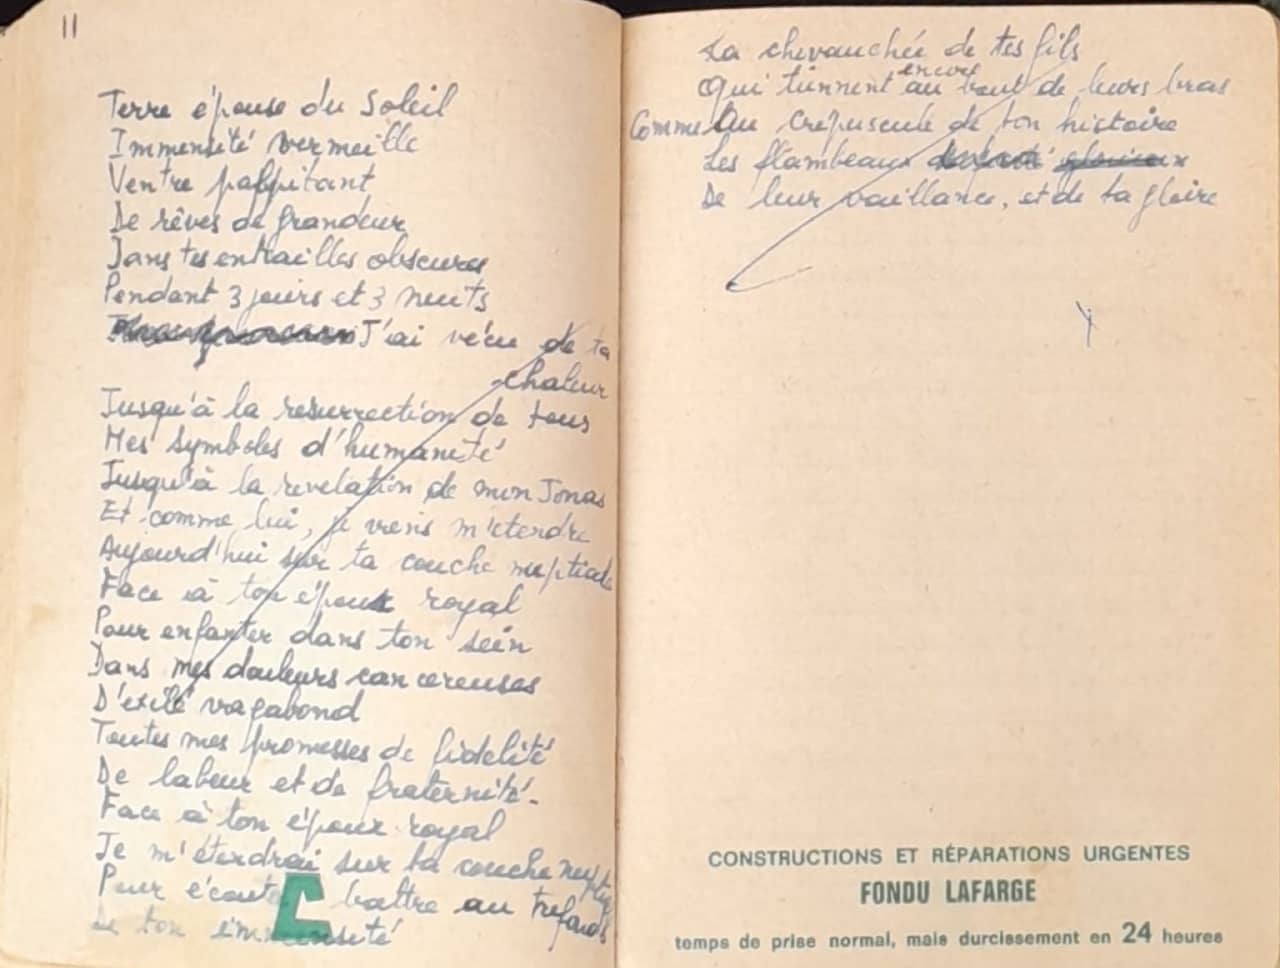 11
Terre épouse du Soleil
Immensité vermeille
Ventre palpitant
De rêves de grandeur
Dans tes entrailles obscures
Pendant 3 jours et 3 nuits
J'ai vécu de ta
chaleur
Jusqu'à la resurrection de tous
Mes symboles d'humanité
Jusqu'à la revelation de mon Jonas
Et comme lui, je viens m'étendre
Aujourd'hui sur ta couche nuptiale
Face à ton époux royal
Pour enfanter dans ton sein
Dans mes douleurs cancereuses
D'exilé vagabond
Toutes mes promesses de fidelité
De labeur et de fraternité.
Face à ton époux royal
Je m'étendrai sur ta couche
Pour écouter battre au tréfonds
De ton immensité
La chevauchée de tes fils
encore
Qui tiennent au bout de leurs bras
Comme Au crépuscule de ton histoire
Les flambeaux
De leur vaillance, et de ta gloire
CONSTRUCTIONS ET RÉPARATIONS URGENTES
FONDU LAFARGE
temps de prise normal, mais durcissement en 24 heures